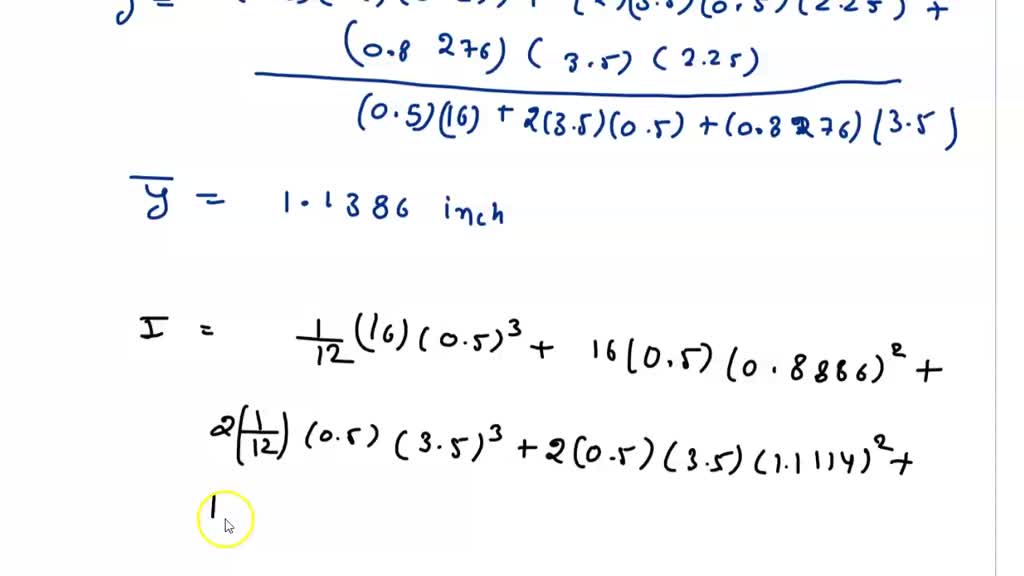 (0.8 276) ( 3.5) ( 2.25)
(0.5)(16) + 2(3.5)(0.5) + (0.8276)(3.5)
y̅ = 1.1386 inch
I = 1/12 (16)(0.5)³ + 16(0.5)(0.8886)² +
2(1/12) (0.5) (3.5)³ + 2(0.5)(3.5)(1.1114)² +
1